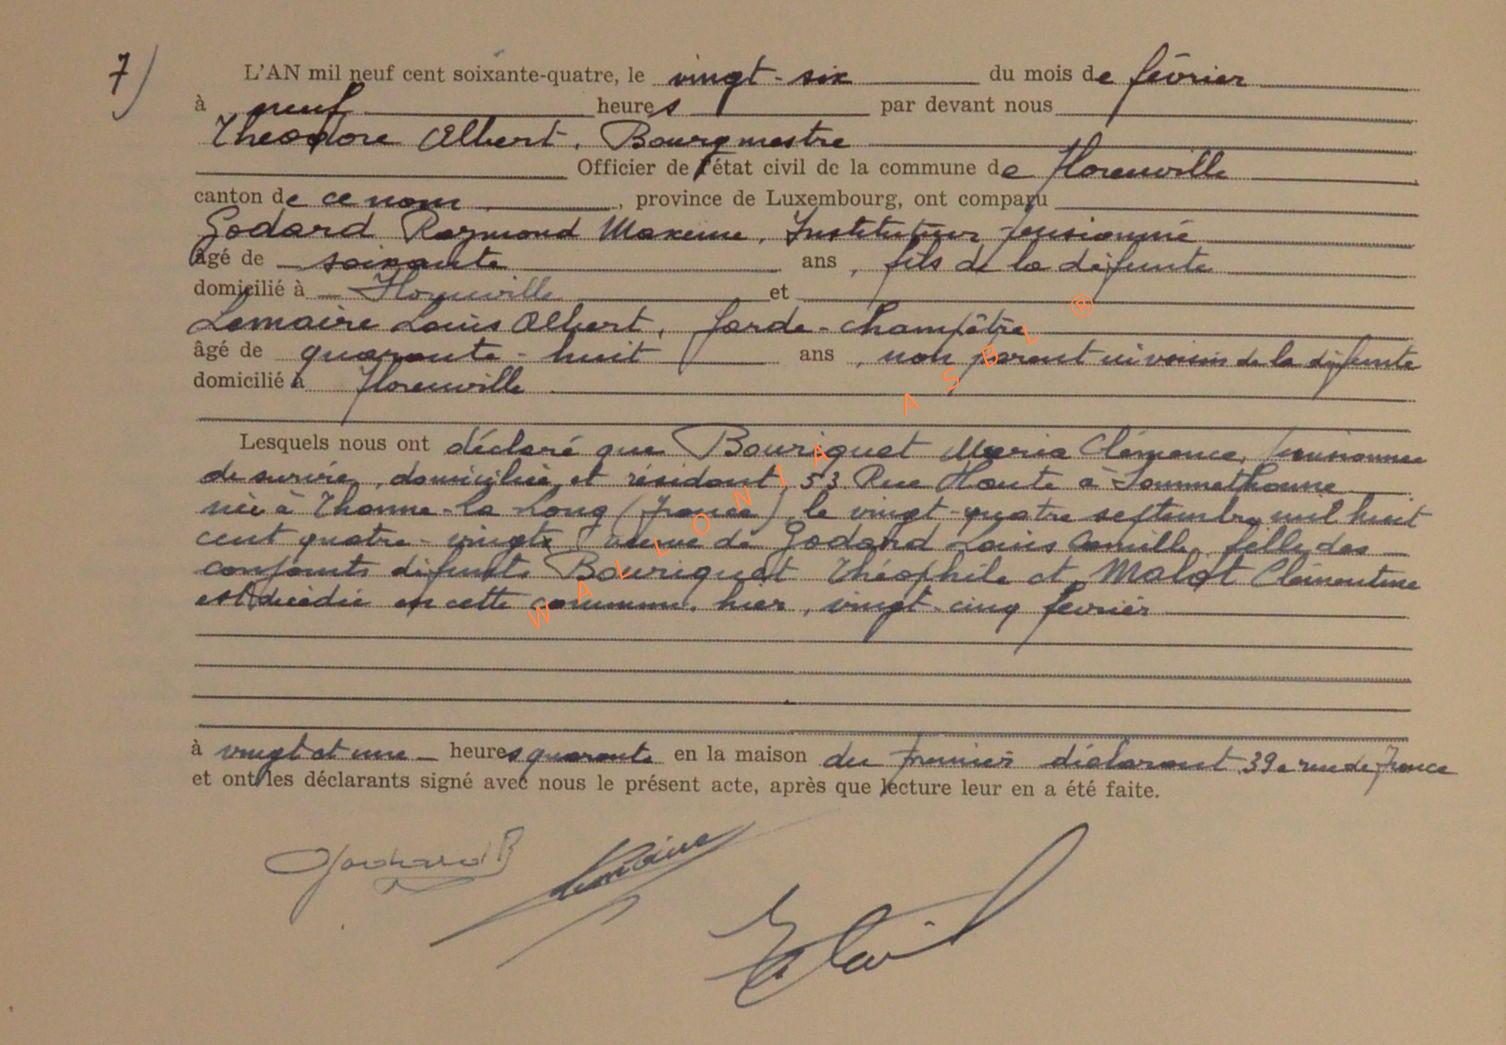 7)
L'AN mil neuf cent soixante-quatre, le vingt-six du mois de février
à neuf heures par devant nous
Théodore Albert, Bourgmestre
Officier de l'état civil de la commune de Florenville
canton de ce nom, province de Luxembourg, ont comparu
Godard Raymond Maxime, Instituteur pensionné
âgé de soixante ans, fils de la défunte
domicilié à Florenville et
Lemaire Louis Albert, Garde-champêtre
âgé de quarante-huit ans, non parent ni voisin de la défunte
domicilié à Florenville
Lesquels nous ont déclaré que Bouriquet Maria Clémence, pensionnée
de survie, domiciliée et résidant, 53 Rue Haute à Sommethonne
née à Thonne-la-Long (France) le vingt-quatre septembre mil huit
cent quatre-vingts, veuve de Godard Louis Camille, fille des
conjoints défunts Bouriquet Théophile et Malot Clémentine
est décédée en cette commune, hier, vingt-cinq février
à vingt et une heures quarante en la maison du premier déclarant 39e rue de France
et ont les déclarants signé avec nous le présent acte, après que lecture leur en a été faite.
Godard R
Lemaire
WALLONIA ASBL ®